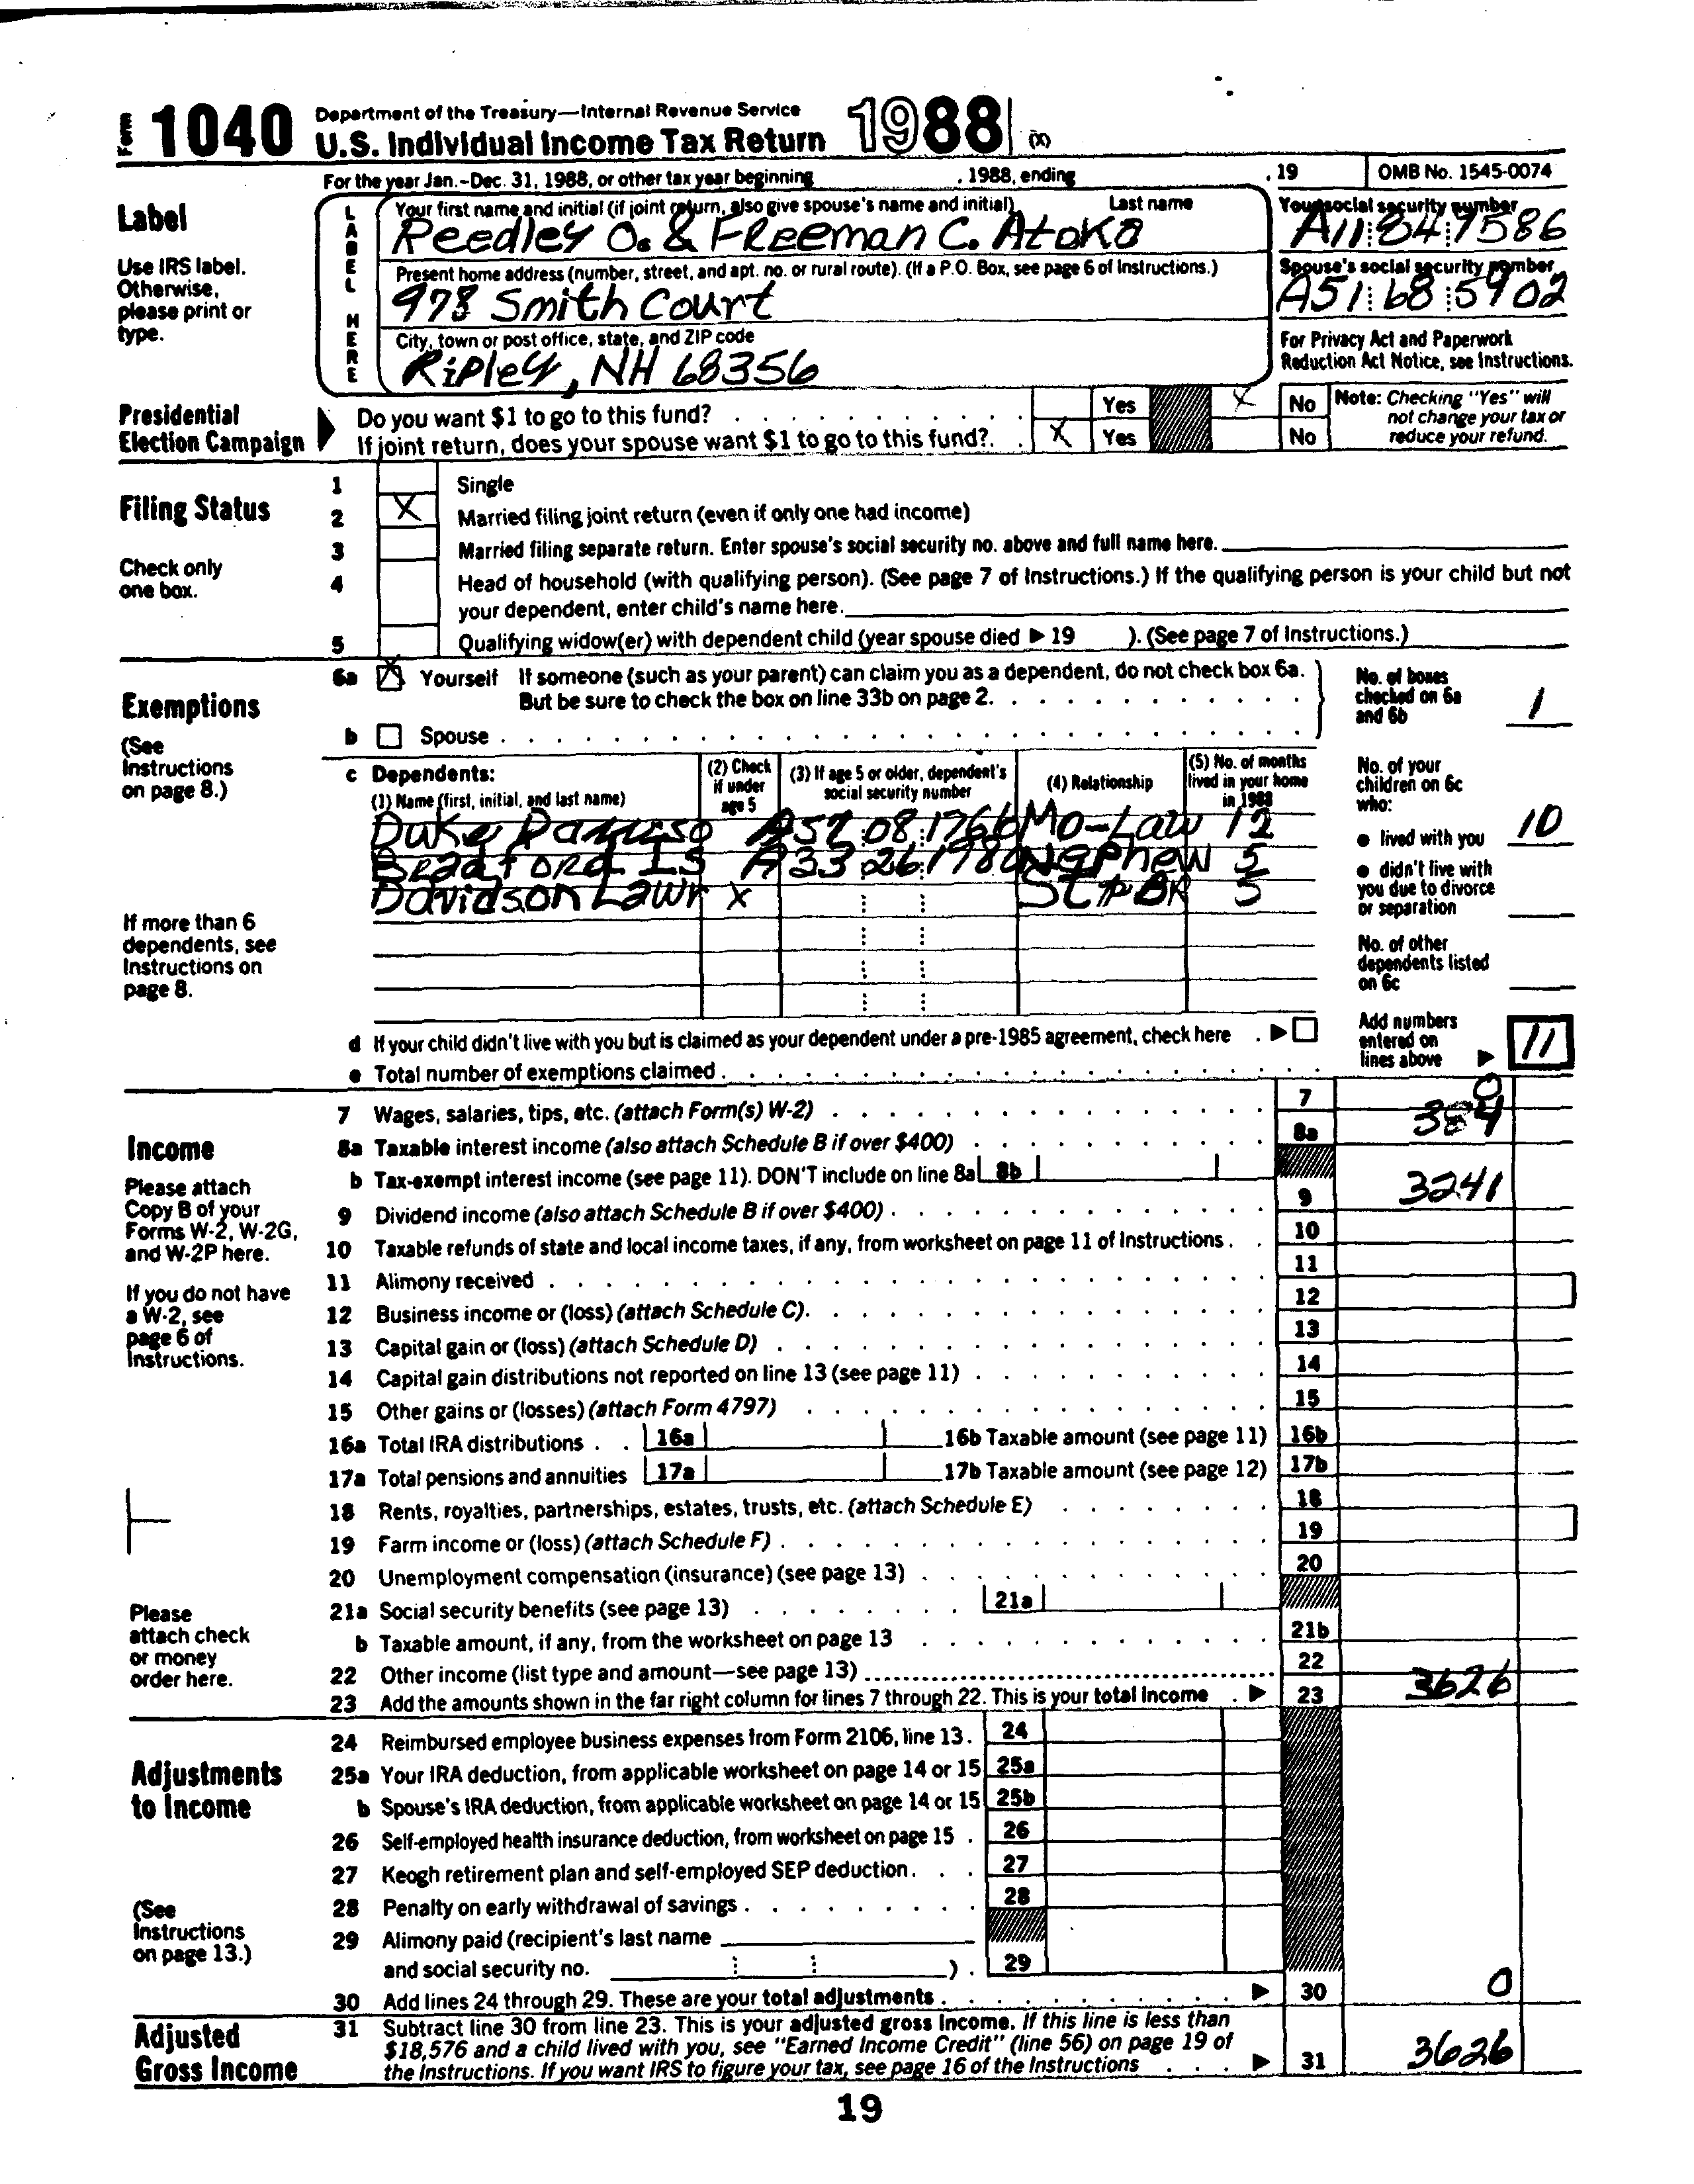 Form 1040 Department of the Treasury—Internal Revenue Service
U.S. Individual Income Tax Return 1988 (X)
For the year Jan.–Dec. 31, 1988, or other tax year beginning , 1988, ending , 19 OMB No. 1545-0074
Label
Use IRS label.
Otherwise,
please print or
type.
LABEL HERE
Your first name and initial (if joint return, also give spouse's name and initial) Last name
Reedley O. & Freeman C. Atoka
Your social security number
A11 84 7586
Present home address (number, street, and apt. no. or rural route). (If a P.O. Box, see page 6 of Instructions.)
978 Smith Court
Spouse's social security number
A51 68 5902
City, town or post office, state, and ZIP code
Ripley, NH 68356
For Privacy Act and Paperwork
Reduction Act Notice, see Instructions.
Presidential
Election Campaign
Do you want $1 to go to this fund? Yes X No
If joint return, does your spouse want $1 to go to this fund?. X Yes No
Note: Checking "Yes" will
not change your tax or
reduce your refund.
Filing Status
Check only
one box.
1 Single
2 X Married filing joint return (even if only one had income)
3 Married filing separate return. Enter spouse's social security no. above and full name here.
4 Head of household (with qualifying person). (See page 7 of Instructions.) If the qualifying person is your child but not
your dependent, enter child's name here.
5 Qualifying widow(er) with dependent child (year spouse died ▶ 19 ). (See page 7 of Instructions.)
Exemptions
(See
Instructions
on page 8.)
6a X Yourself If someone (such as your parent) can claim you as a dependent, do not check box 6a.
But be sure to check the box on line 33b on page 2.
b Spouse
No. of boxes
checked on 6a
and 6b 1
c Dependents:
(1) Name (first, initial, and last name)
(2) Check
if under
age 5
(3) If age 5 or older, dependent's
social security number
(4) Relationship
(5) No. of months
lived in your home
in 1988
Duke A57 08 1766 Mo-Law 12
Bradford IS A33 26 1980 Nephew 5
Davidson Lawr X St PBR 5
If more than 6
dependents, see
Instructions on
page 8.
No. of your
children on 6c
who:
● lived with you 10
● didn't live with
you due to divorce
or separation
No. of other
dependents listed
on 6c
d If your child didn't live with you but is claimed as your dependent under a pre-1985 agreement, check here ▶
e Total number of exemptions claimed
Add numbers
entered on
lines above ▶ 11
Income
Please attach
Copy B of your
Forms W-2, W-2G,
and W-2P here.
If you do not have
a W-2, see
page 6 of
Instructions.
Please
attach check
or money
order here.
7 Wages, salaries, tips, etc. (attach Form(s) W-2) 7 0
8a Taxable interest income (also attach Schedule B if over $400) 8a 384
b Tax-exempt interest income (see page 11). DON'T include on line 8a 8b
9 Dividend income (also attach Schedule B if over $400) 9 3241
10 Taxable refunds of state and local income taxes, if any, from worksheet on page 11 of Instructions 10
11 Alimony received 11
12 Business income or (loss) (attach Schedule C). 12
13 Capital gain or (loss) (attach Schedule D) 13
14 Capital gain distributions not reported on line 13 (see page 11) 14
15 Other gains or (losses) (attach Form 4797) 15
16a Total IRA distributions 16a 16b Taxable amount (see page 11) 16b
17a Total pensions and annuities 17a 17b Taxable amount (see page 12) 17b
18 Rents, royalties, partnerships, estates, trusts, etc. (attach Schedule E) 18
19 Farm income or (loss) (attach Schedule F) 19
20 Unemployment compensation (insurance) (see page 13) 20
21a Social security benefits (see page 13) 21a
b Taxable amount, if any, from the worksheet on page 13 21b
22 Other income (list type and amount—see page 13) 22
23 Add the amounts shown in the far right column for lines 7 through 22. This is your total income ▶ 23 3626
Adjustments
to Income
(See
Instructions
on page 13.)
24 Reimbursed employee business expenses from Form 2106, line 13. 24
25a Your IRA deduction, from applicable worksheet on page 14 or 15 25a
b Spouse's IRA deduction, from applicable worksheet on page 14 or 15 25b
26 Self-employed health insurance deduction, from worksheet on page 15 26
27 Keogh retirement plan and self-employed SEP deduction 27
28 Penalty on early withdrawal of savings 28
29 Alimony paid (recipient's last name
and social security no. ) 29
30 Add lines 24 through 29. These are your total adjustments ▶ 30 0
Adjusted
Gross Income
31 Subtract line 30 from line 23. This is your adjusted gross income. If this line is less than
$18,576 and a child lived with you, see "Earned Income Credit" (line 56) on page 19 of
the Instructions. If you want IRS to figure your tax, see page 16 of the Instructions ▶ 31 3626
19